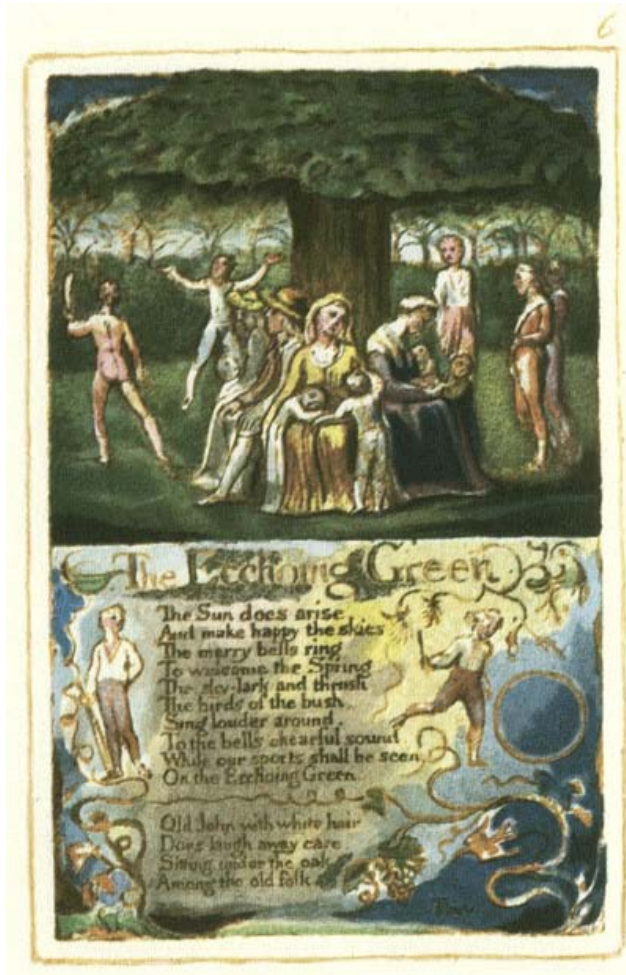 6
The Ecchoing Green
The Sun does arise,
And make happy the skies
The merry bells ring
To welcome the Spring
The sky-lark and thrush
The birds of the bush,
Sing louder around,
To the bells chearful sound
While our sports shall be seen
On the Ecchoing Green.
Old John with white hair
Does laugh away care
Sitting under the oak
Among the old folk,
They